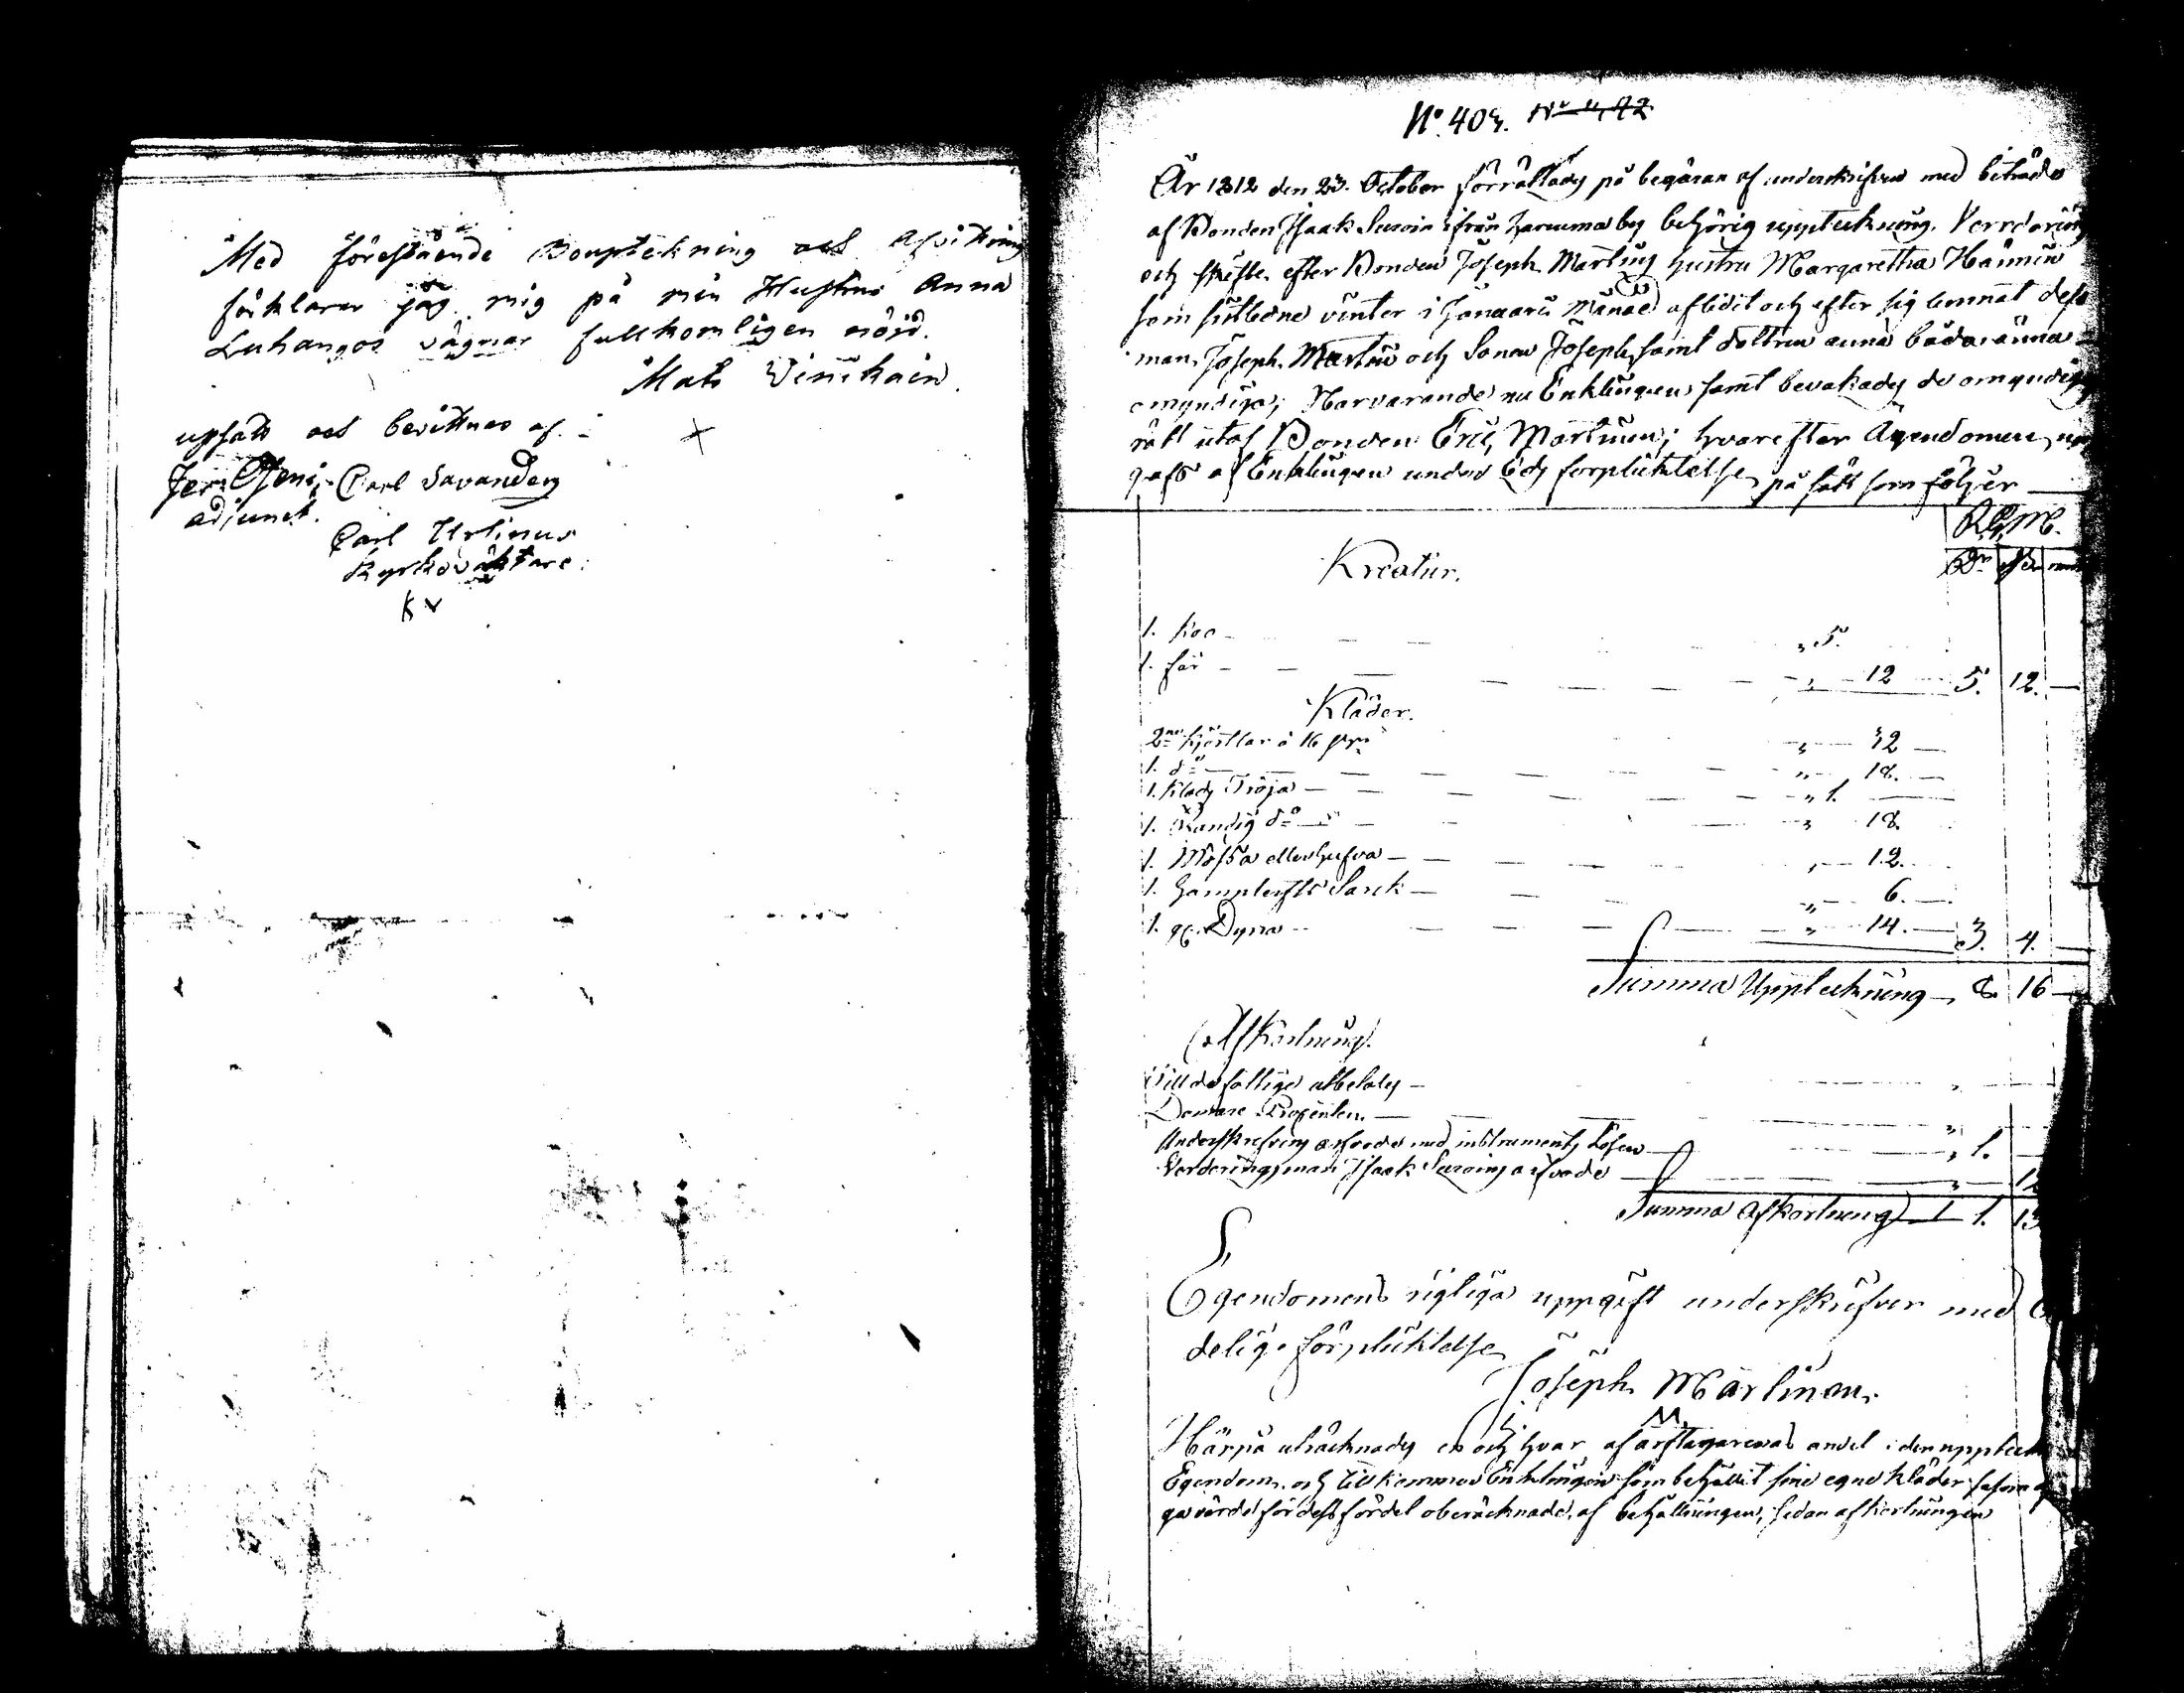 Med föreståendе Bouptekning och Afvitring
förklarar jag mig på min Hustrus Anna
Luhangos vägnar fullkomligen nöjd.
Mats Vinikain
upsatt och bevittnas af
Carl Savander
adjunct.
Carl Urlinus
Kyrkoväktare
N° 403.
År 1812 den 23. October förrättades på begäran af underskrifven med biträde
af Bonden Isaak Suroin ifrån by behörig uppteckning. Värdering
och skifte efter Bonden Joseph Martins hustru Margaretha Hännin
som sistledne vinter i Januarii Månad aflidit och efter sig lemnat dess
man Joseph Martin och Sonen Joseph samt dottren anna båda ännu
omyndiga; Närvarande nu Enklingen samt bevakades de omyndigas
rätt utaf Bonden Eric Martinen; hvarefter Ägendomen upp
gafs af Enklingen under Eds förpliktelse på sätt som följer
Kreatur.
1. Koo 5.
1. får 12 5. 12.
Kläder.
2ne kjortlar á 16 32
1. do 18.
1. Klädes Tröja 1.
1. Randig do 18.
1. Mössa eller hufva 12.
1. Särck 6.
1. Dyna 14. 3. 4.
Summa Uppteckning 8. 16
Afkortning.
Till de fattige utbetales
Domare Procenten
Underskrifvens arfvode med instruments Lösen 1.
Värderingsman Isaak Suroins arfvode 12
Summa afkortning 1. 13
Egendomens rigtiga uppgift underskrifver med
delig förpliktelse
Joseph Martinen.
Härpå uträcknades en och hvar af arftagarenas andel i den uppteck
Egendom, och tillkommer Enklingen som behållit sine egne kläder
värde för dess fördel oberäcknade, af behållningen, sedan afkortningen